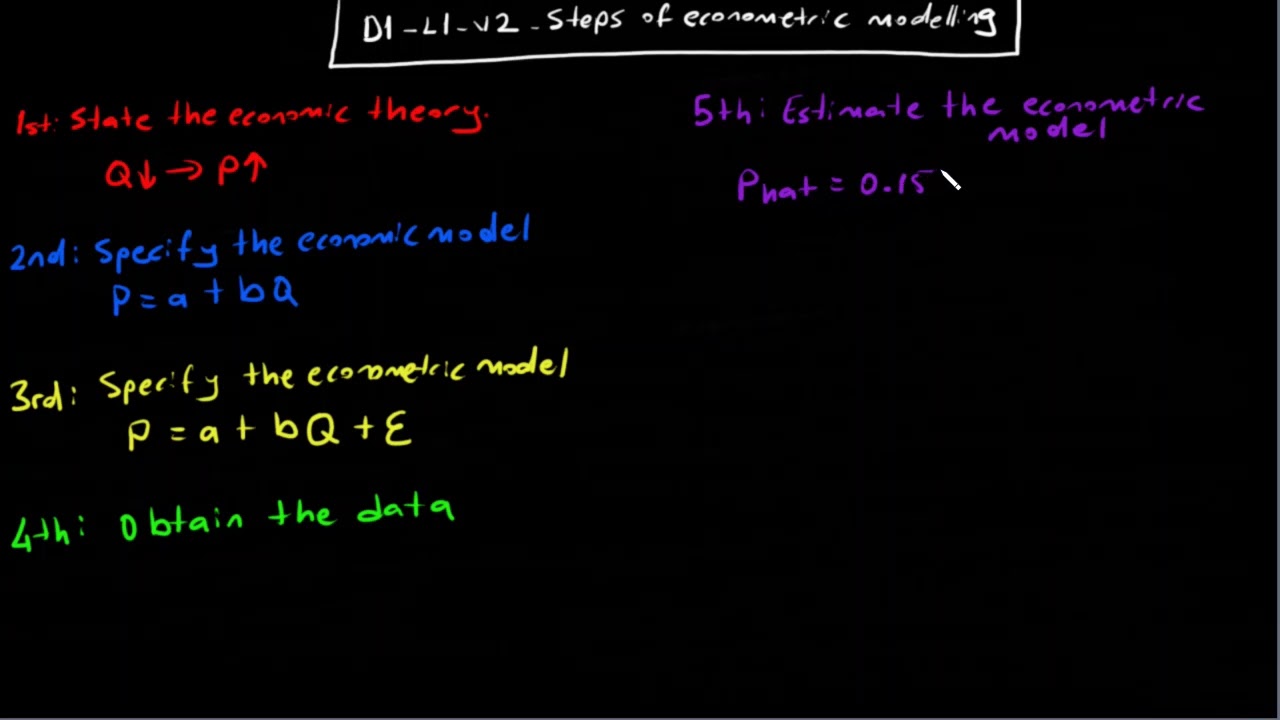 D1-L1-V2 - Steps of econometric modelling
1st: State the economic theory.
Q↓ → P↑
2nd: Specify the economic model
P = a + bQ
3rd: Specify the econometric model
P = a + bQ + ε
4th: Obtain the data
5th: Estimate the econometric
model
Phat = 0.15